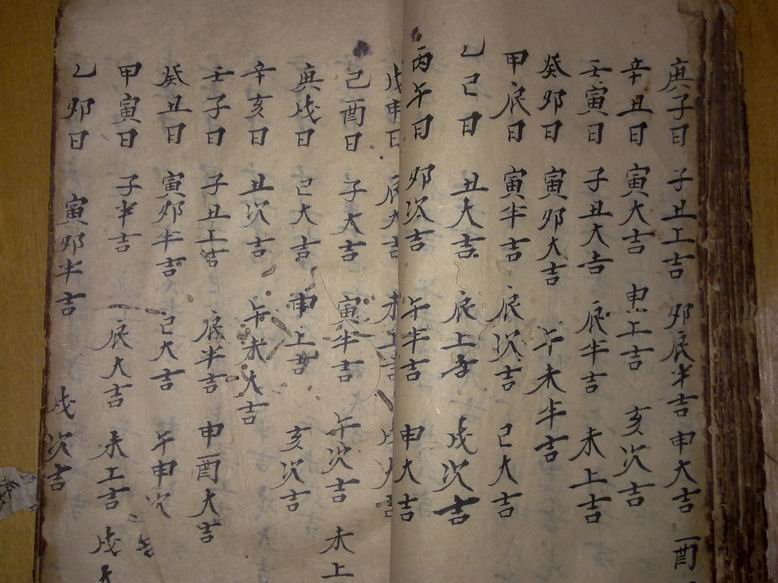 庚子日 子丑上吉 卯辰半吉 申大吉 酉
辛丑日 寅大吉 申上吉 亥次吉
壬寅日 子丑大吉 辰半吉 未上吉
癸卯日 寅卯大吉 午未半吉
甲辰日 寅半吉 辰次吉 巳大吉
乙巳日 丑大吉 辰上吉 戌次吉
丙午日 卯次吉 午半吉 申大吉
戊申日 辰大吉 未上吉
己酉日 子大吉 寅半吉 午次吉 未上
庚戌日 巳大吉 申上吉 亥次吉
辛亥日 丑次吉 午未大吉
壬子日 子丑上吉 辰半吉 申酉大吉
癸丑日 寅卯半吉 巳大吉 午申次
甲寅日 子半吉 辰大吉 未上吉 戌大
乙卯日 寅卯半吉 戌次吉